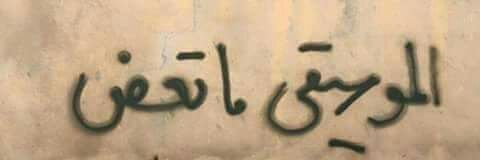 الموسيقى ماتعض